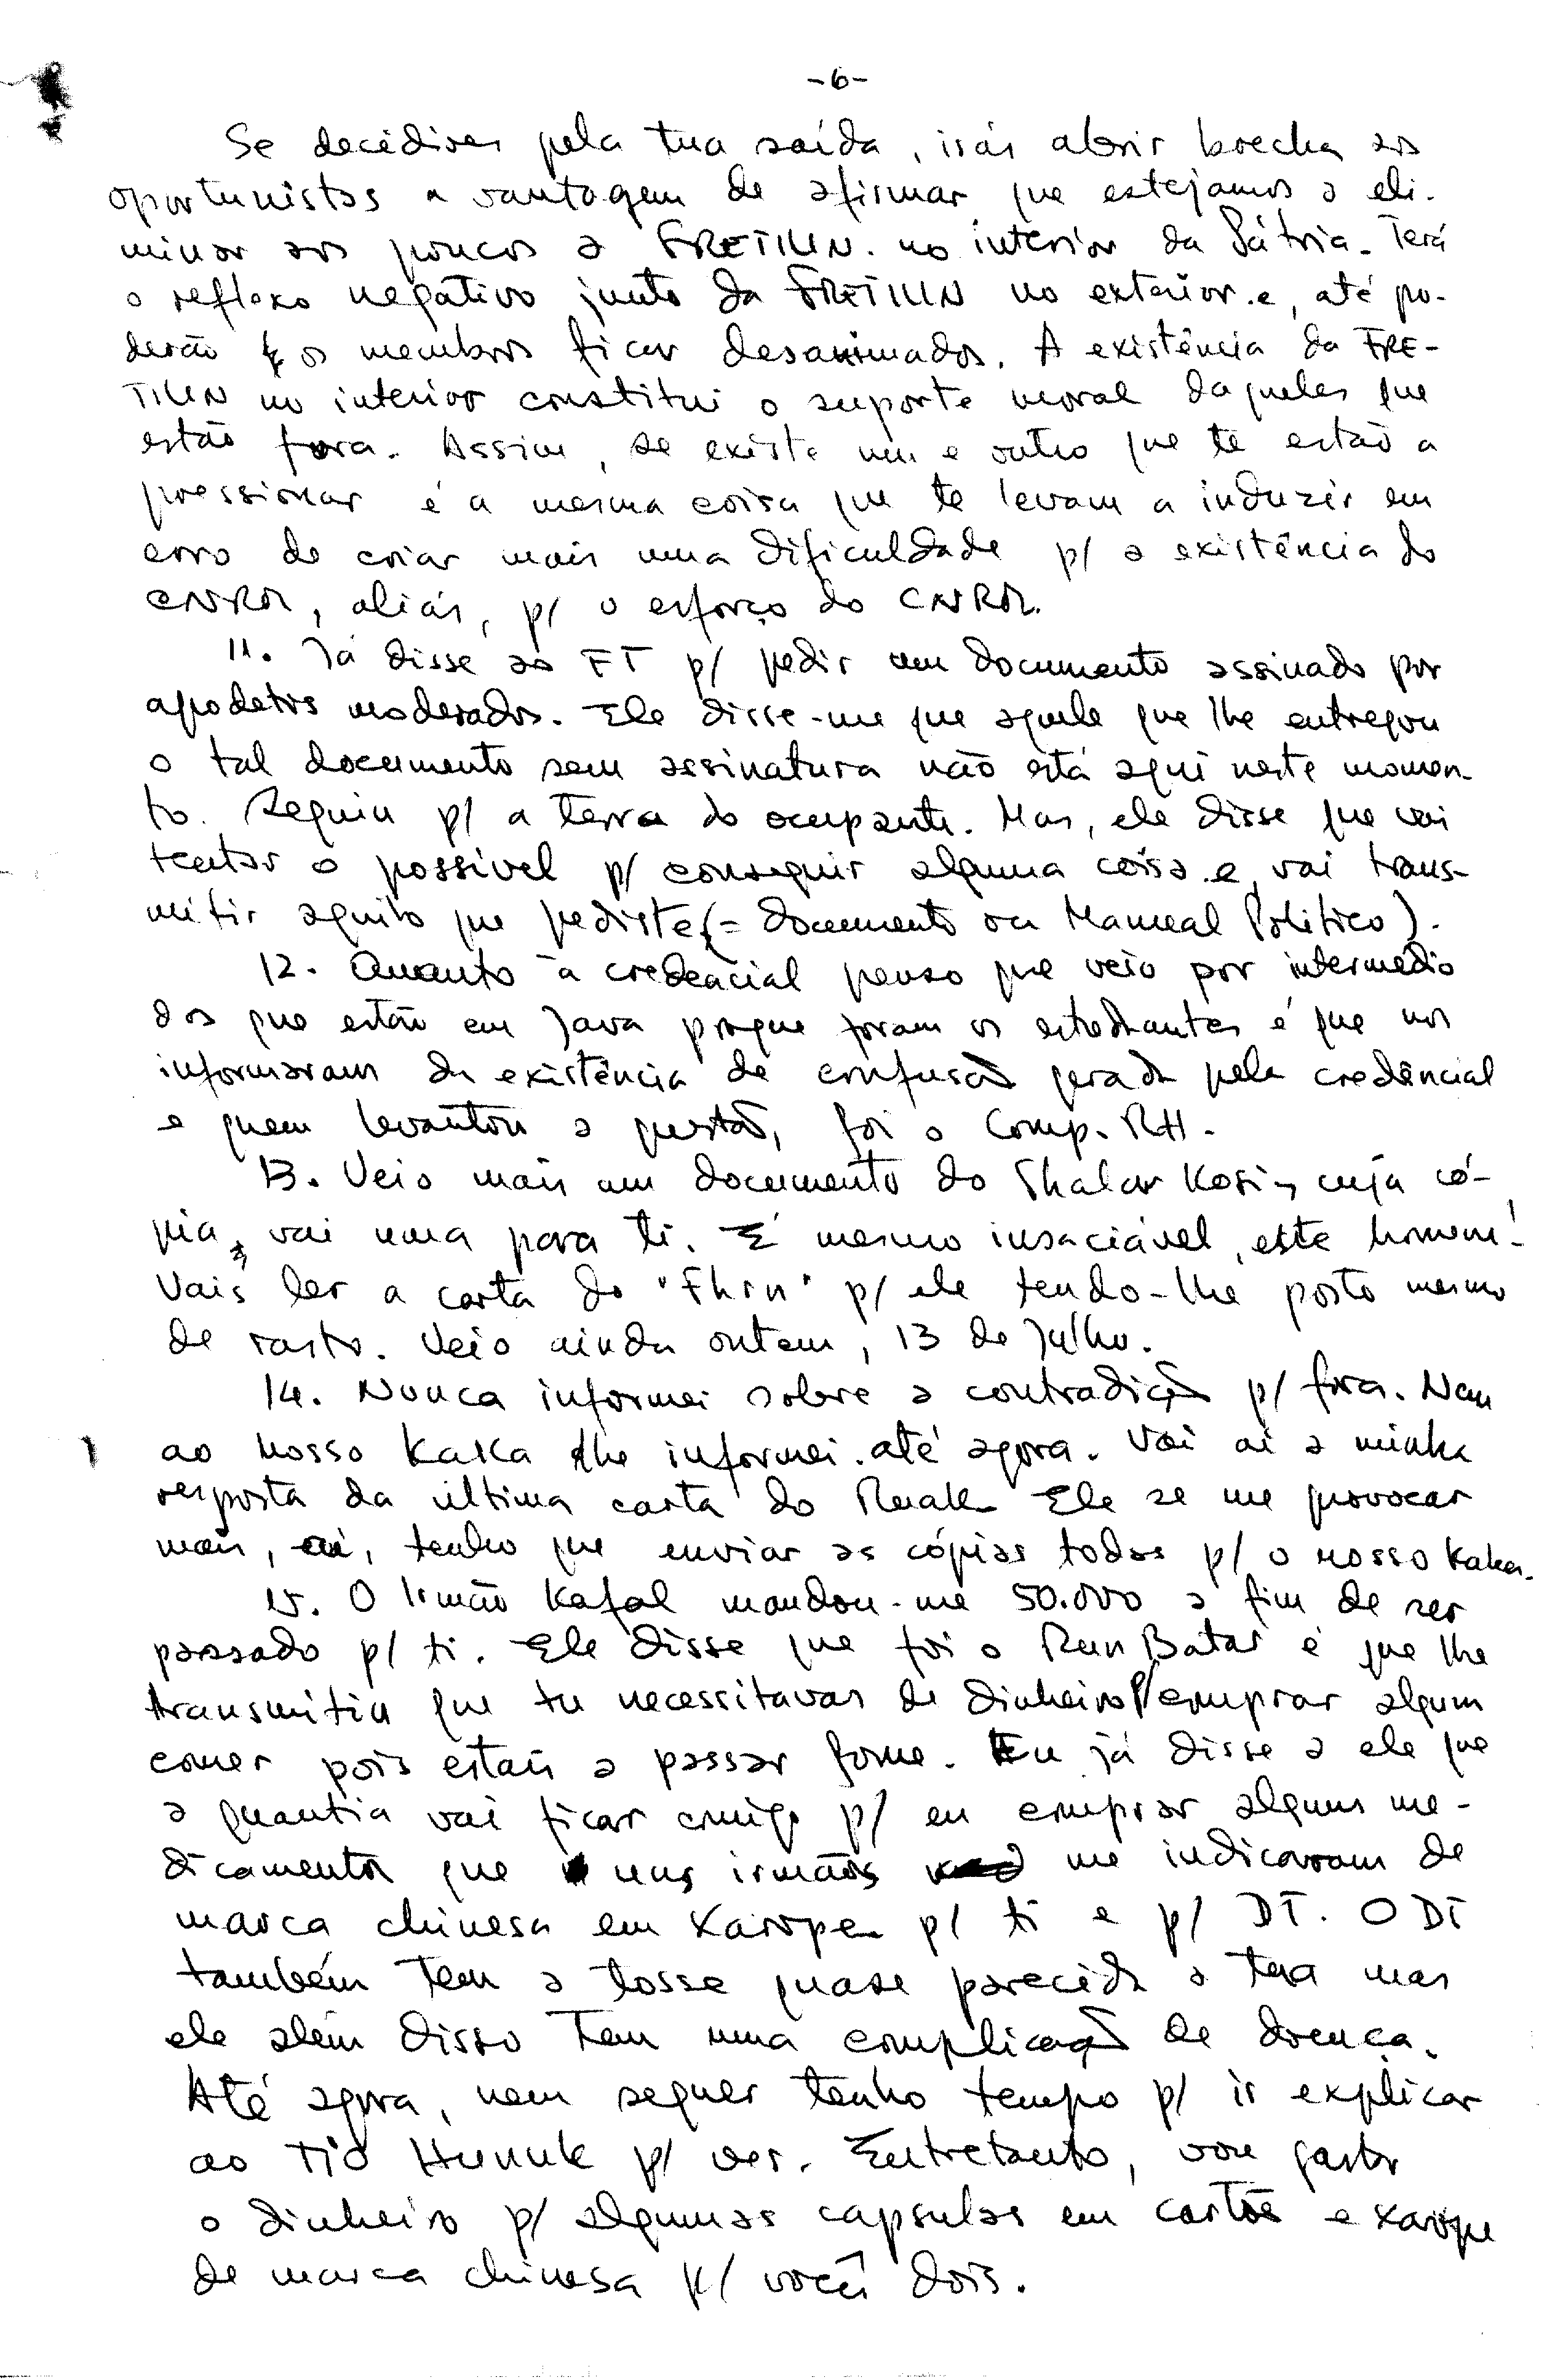 -6-
Se decidires pela tua saída, irás abrir brecha aos
oportunistas a vantagem de afirmar que estejamos a eli-
minar aos poucos a FRETILIN. no interior da Pátria. Terá
o reflexo negativo junto da FRETILIN no exterior e, até po-
derão os membros ficar desanimados. A existência da FRE-
TILIN no interior constitui o suporte moral daqueles que
estão fora. Assim, se existe um e outro que te estão a
pressionar é a mesma coisa que te levam a induzir em
erro de criar mais uma dificuldade p/ a existência do
CNRM, aliás, p/ o esforço do CNRM.
11. Já disse ao FT p/ pedir um documento assinado por
apodetis moderados. Ele disse-me que aquele que lhe entregou
o tal documento sem assinatura não está aqui neste momen-
to. Seguiu p/ a terra do ocupante. Mas, ele disse que vai
tentar o possível p/ conseguir alguma coisa e vai trans-
mitir aquilo que pediste (= documento ou Manual Político).
12. Quanto à credencial penso que veio por intermédio
dos que estão em Java porque foram os estudantes é que nos
informaram da existência de confusão gerada pela credêncial
e quem levantou a questão, foi o Comp. RH.
13. Veio mais um documento do Shalar Kosi, cuja có-
pia, vai uma para ti. É mesmo insaciável, este homem!
Vais ler a carta do "Fhin" p/ ele tendo-lhe posto mesmo
de rasto. Veio ainda ontem, 13 de Julho.
14. Nunca informei sobre a contradição p/ fora. Nem
ao nosso Kaka lhe informei até agora. Vai aí a minha
resposta da última carta do Ruak. Ele se me provocar
mais, aí, tenho que enviar as cópias todas p/ o nosso Kaka.
15. O Irmão Kafal mandou-me 50.000 a fim de ser
passado p/ ti. Ele disse que foi o Run Batar é que lhe
transmitiu que tu necessitavas de dinheiro p/ comprar algum
comer pois estais a passar fome. Eu já disse a ele que
a quantia vai ficar comigo p/ eu comprar alguns me-
dicamentos que uns irmãos me indicaram de
marca chinesa em xarope p/ ti e p/ DT. O DT
também tem a tosse quase parecida a tua mas
ele além disso tem uma complicação de doença.
Até agora, nem sequer tenho tempo p/ ir explicar
ao TIO Hunuk p/ ver. Entretanto, vou gastar
o dinheiro p/ algumas capsulas em cartão e xarope
de marca chinesa p/ vocês dois.